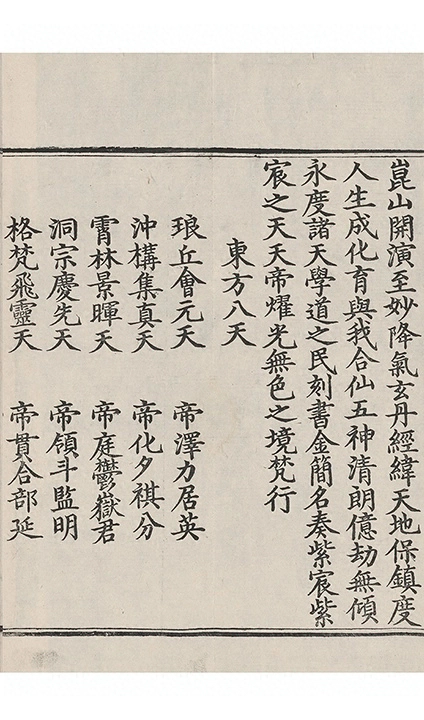 崑山開演至妙降氣玄丹經緯天地保鎮度
人生成化育與我合仙五神清朗億劫無傾
永度諸天學道之民刻書金簡名奏紫宸紫
宸之天天帝燿光無色之境梵行
東方八天
琅丘會元天 帝澤力居英
沖構集真天 帝化夕祺分
霄林景暉天 帝庭鬱嶽君
洞宗慶先天 帝領斗監明
格梵飛靈天 帝貫合部延